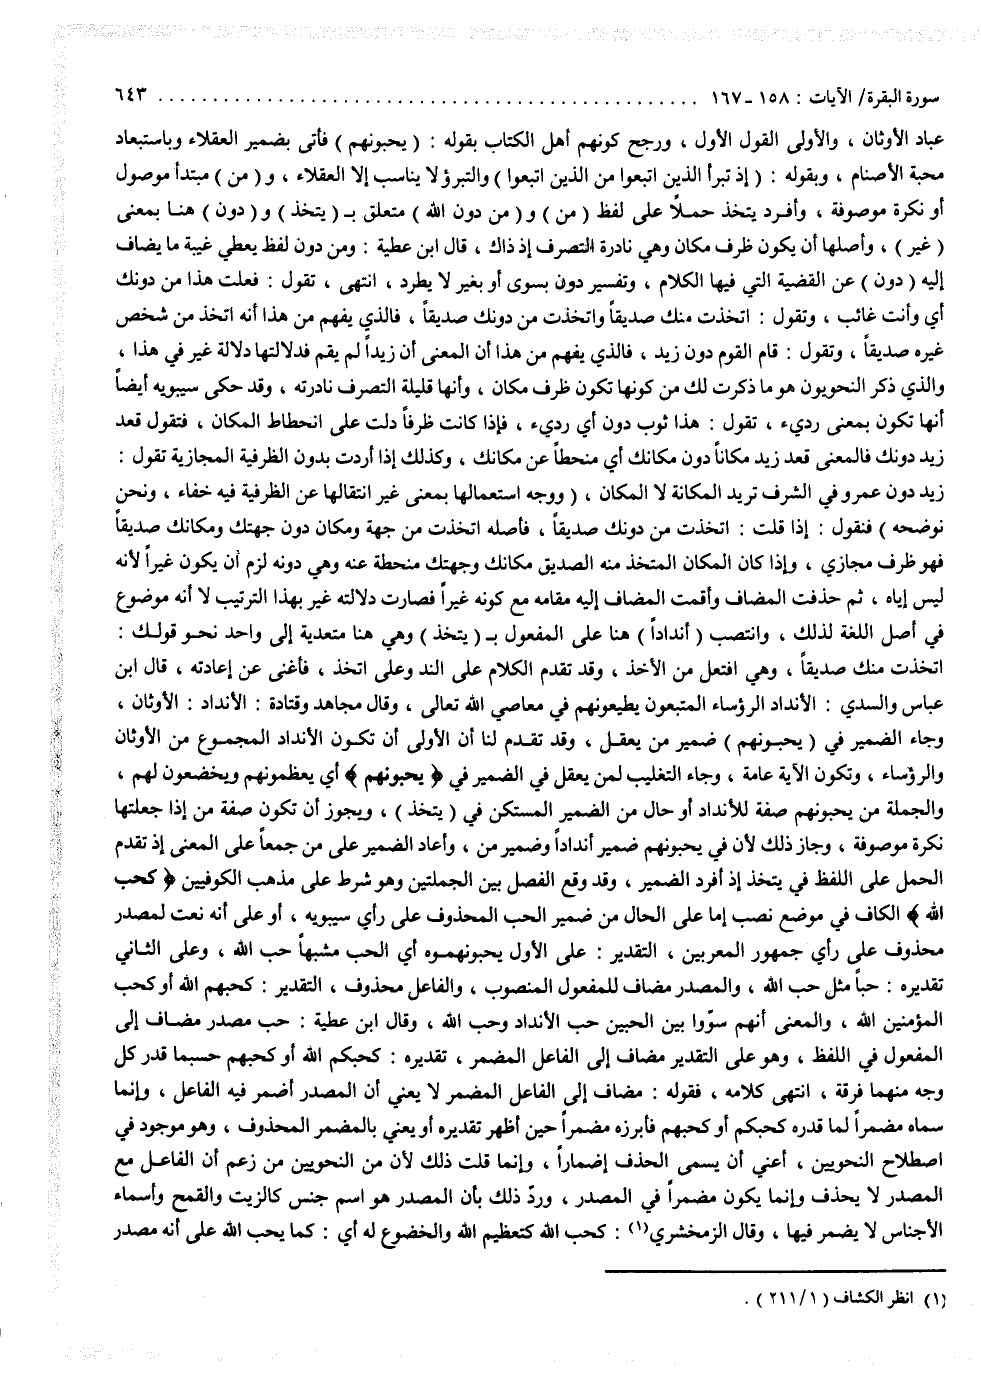 سورة البقرة/ الآيات : ١٥٨ ـ ١٦٧ ................................................ ٦٤٣
عباد الأوثان ، والأولى القول الأول ، ورجح كونهم أهل الكتاب بقوله : ( يحبونهم ) فأتى بضمير العقلاء وباستبعاد
محبة الأصنام ، وبقوله : ( إذ تبرأ الذين اتبعوا من الذين اتبعوا ) والتبرؤ لا يناسب إلا العقلاء ، و( من ) مبتدأ موصول
أو نكرة موصوفة ، وأفرد يتخذ حملاً على لفظ ( من ) و( من دون الله ) متعلق بـ ( يتخذ ) و( دون ) هنا بمعنى
( غير ) ، وأصلها أن يكون ظرف مكان وهي نادرة التصرف إذ ذاك ، قال ابن عطية : ومن دون لفظ يعطي غيبة ما يضاف
إليه ( دون ) عن القضية التي فيها الكلام ، وتفسير دون بسوى أو بغير لا يطرد ، انتهى ، تقول : فعلت هذا من دونك
أي وأنت غائب ، وتقول : اتخذت منك صديقاً واتخذت من دونك صديقاً ، فالذي يفهم من هذا أنه اتخذ من شخص
غيره صديقاً ، وتقول : قام القوم دون زيد ، فالذي يفهم من هذا أن المعنى أن زيداً لم يقم فدلالتها دلالة غير في هذا ،
والذي ذكر النحويون هو ما ذكرت لك من كونها تكون ظرف مكان ، وأنها قليلة التصرف نادرته ، وقد حكى سيبويه أيضاً
أنها تكون بمعنى رديء ، تقول : هذا ثوب دون أي رديء ، فإذا كانت ظرفاً دلت على انحطاط المكان ، فتقول قعد
زيد دونك فالمعنى قعد زيد مكاناً دون مكانك أي منحطاً عن مكانك ، وكذلك إذا أردت بدون الظرفية المجازية تقول :
زيد دون عمرو في الشرف تريد المكانة لا المكان ، ( ووجه استعمالها بمعنى غير انتقالها عن الظرفية فيه خفاء ، ونحن
نوضحه ) فنقول : إذا قلت : اتخذت من دونك صديقاً ، فأصله اتخذت من جهة ومكان دون جهتك ومكانك صديقاً
فهو ظرف مجازي ، وإذا كان المكان المتخذ منه الصديق مكانك وجهتك منحطة عنه وهي دونه لزم أن يكون غيراً لأنه
ليس إياه ، ثم حذفت المضاف وأقمت المضاف إليه مقامه مع كونه غيراً فصارت دلالته غير بهذا الترتيب لا أنه موضوع
في أصل اللغة لذلك ، وانتصب ( أنداداً ) هنا على المفعول بـ ( يتخذ ) وهي هنا متعدية إلى واحد نحو قولك :
اتخذت منك صديقاً ، وهي افتعل من الأخذ ، وقد تقدم الكلام على الند وعلى اتخذ ، فأغنى عن إعادته ، قال ابن
عباس والسدي : الأنداد الرؤساء المتبعون يطيعونهم في معاصي الله تعالى ، وقال مجاهد وقتادة : الأنداد : الأوثان ،
وجاء الضمير في ( يحبونهم ) ضمير من يعقل ، وقد تقدم لنا أن الأولى أن تكون الأنداد المجموع من الأوثان
والرؤساء ، وتكون الآية عامة ، وجاء التغليب لمن يعقل في الضمير في ﴿ يحبونهم ﴾ أي يعظمونهم ويخضعون لهم ،
والجملة من يحبونهم صفة للأنداد أو حال من الضمير المستكن في ( يتخذ ) ، ويجوز أن تكون صفة من إذا جعلتها
نكرة موصوفة ، وجاز ذلك لأن في يحبونهم ضمير أنداداً وضمير من ، وأعاد الضمير على من جمعاً على المعنى إذ تقدم
الحمل على اللفظ في يتخذ إذ أفرد الضمير ، وقد وقع الفصل بين الجملتين وهو شرط على مذهب الكوفيين ﴿ كحب
الله ﴾ الكاف في موضع نصب إما على الحال من ضمير الحب المحذوف على رأي سيبويه ، أو على أنه نعت لمصدر
محذوف على رأي جمهور المعربين ، التقدير : على الأول يحبونهموه أي الحب مشبهاً حب الله ، وعلى الثاني
تقديره : حباً مثل حب الله ، والمصدر مضاف للمفعول المنصوب ، والفاعل محذوف ، التقدير : كحبهم الله أو كحب
المؤمنين الله ، والمعنى أنهم سوّوا بين الحبين حب الأنداد وحب الله ، وقال ابن عطية : حب مصدر مضاف إلى
المفعول في اللفظ ، وهو على التقدير مضاف إلى الفاعل المضمر ، تقديره : كحبكم الله أو كحبهم حسبما قدر كل
وجه منهما فرقة ، انتهى كلامه ، فقوله : مضاف إلى الفاعل المضمر لا يعني أن المصدر أضمر فيه الفاعل ، وإنما
سماه مضمراً لما قدره كحبكم أو كحبهم فأبرزه مضمراً حين أظهر تقديره أو يعني بالمضمر المحذوف ، وهو موجود في
اصطلاح النحويين ، أعني أن يسمى الحذف إضماراً ، وإنما قلت ذلك لأن من النحويين من زعم أن الفاعل مع
المصدر لا يحذف وإنما يكون مضمراً في المصدر ، وردّ ذلك بأن المصدر هو اسم جنس كالزيت والقمح وأسماء
الأجناس لا يضمر فيها ، وقال الزمخشري(١) : كحب الله كتعظيم الله والخضوع له أي : كما يحب الله على أنه مصدر
(١) انظر الكشاف ( ٢١١/١ ) .